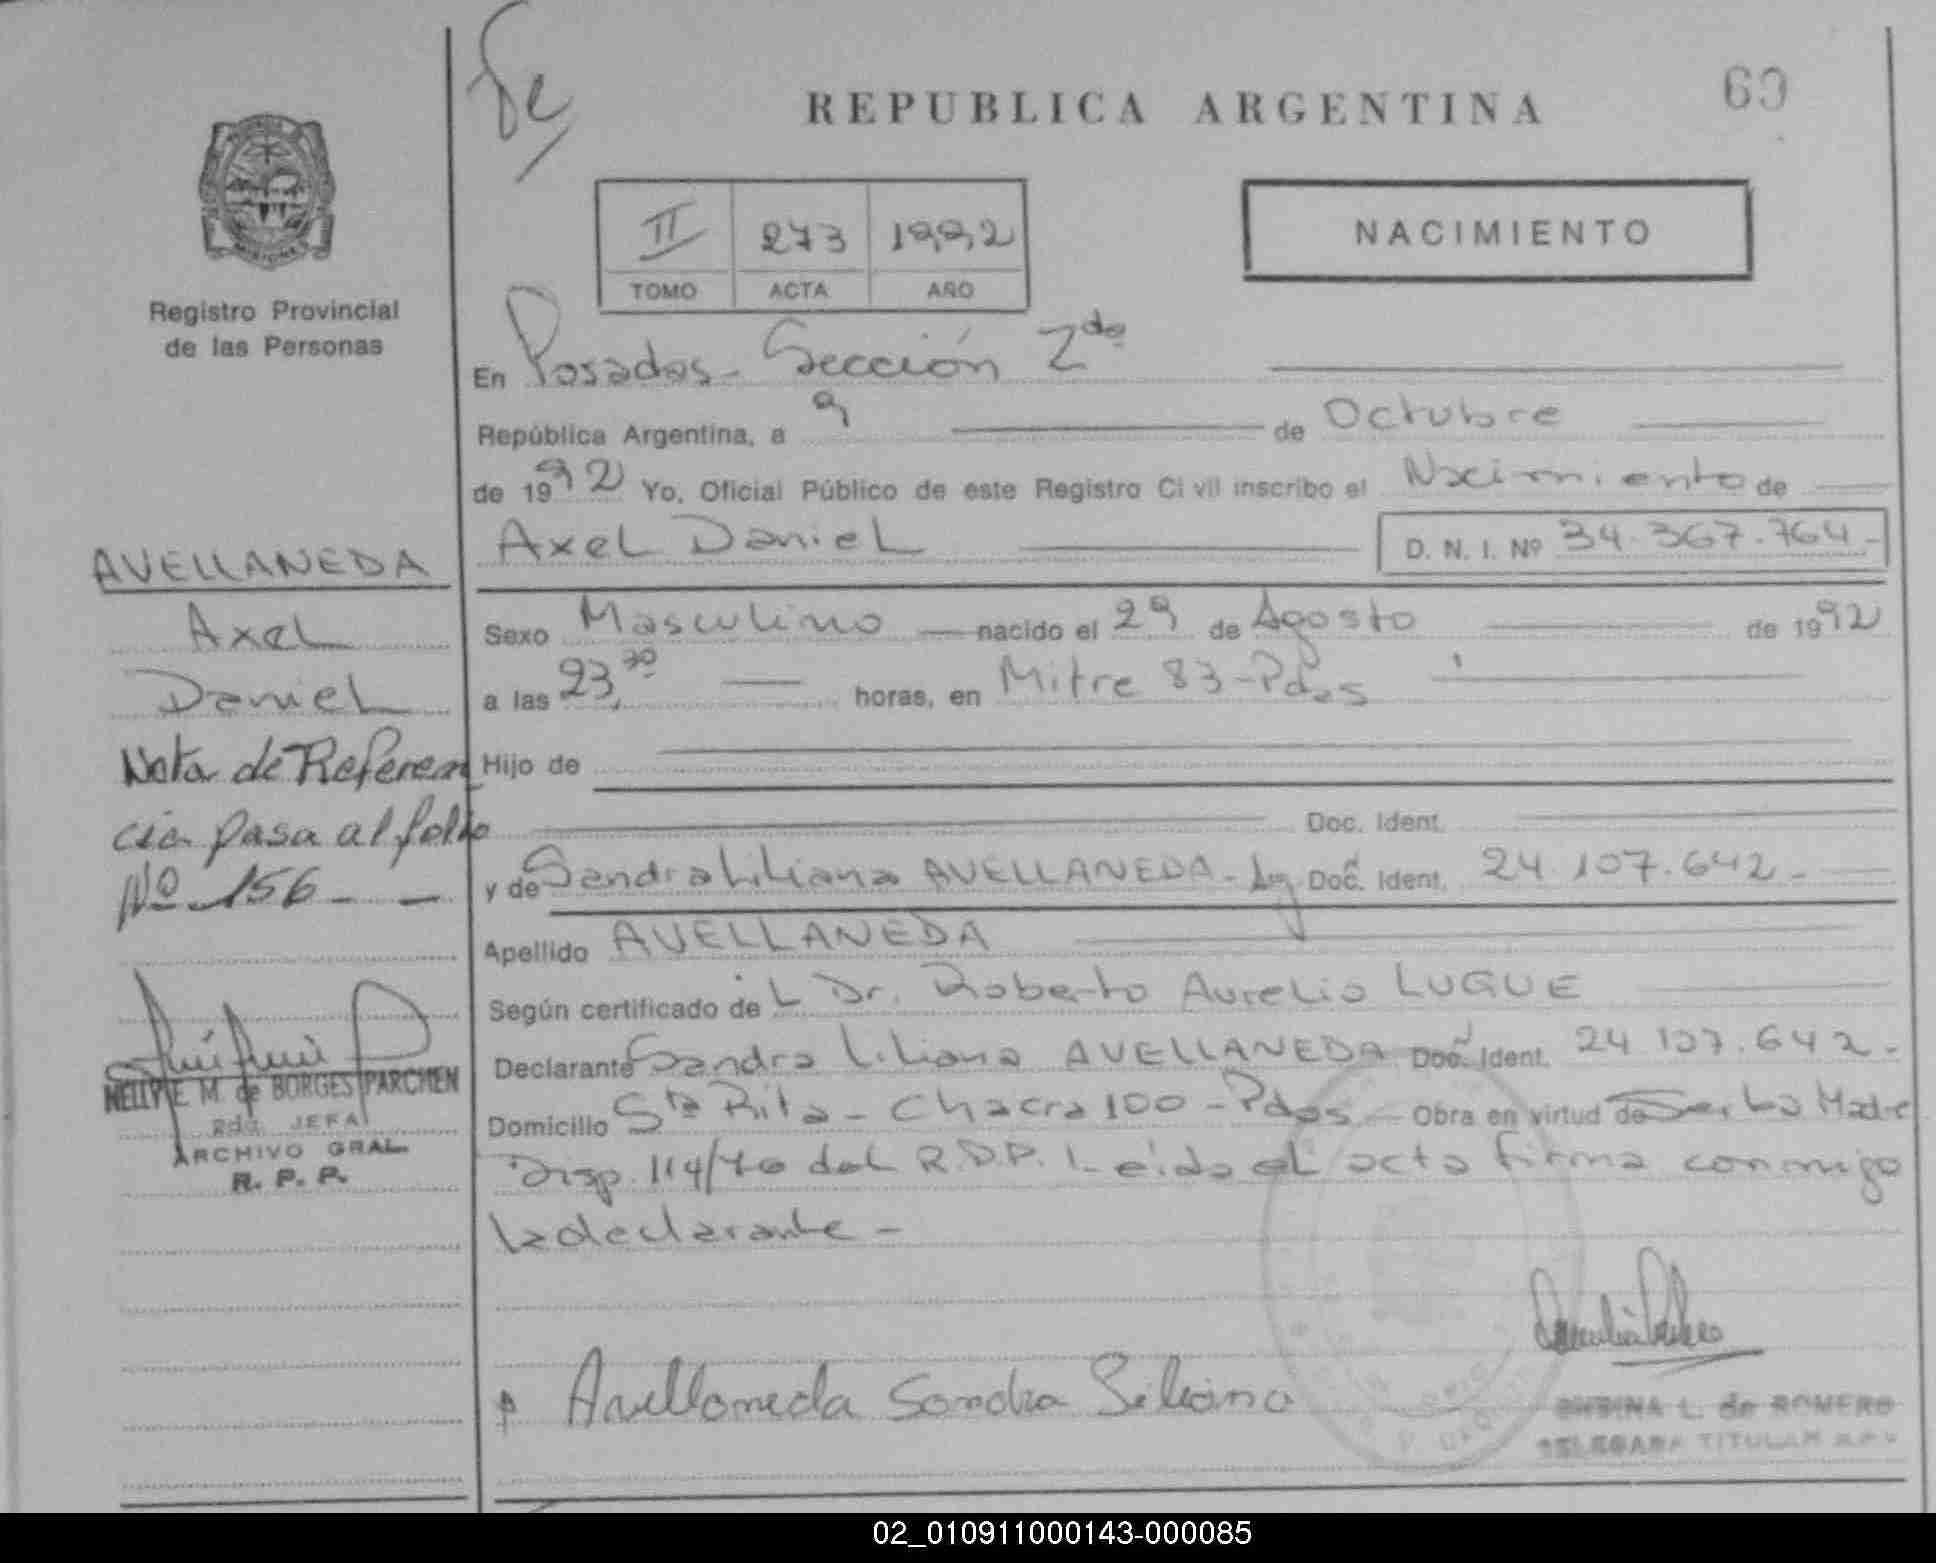 REPUBLICA ARGENTINA
69
II 273 1992
TOMO ACTA AÑO
NACIMIENTO
Registro Provincial
de las Personas
En Posadas - Sección 2da
República Argentina, a 9 de Octubre
de 1992 Yo, Oficial Público de este Registro Civil inscribo el Nacimiento de
Axel Daniel D. N. I. Nº 34.367.764-
AVELLANEDA
Axel
Daniel
Nota de Referen
cia pasa al folio
Nº 156 - -
Sexo Masculino nacido el 29 de Agosto de 1992
a las 23,30 horas, en Mitre 83 - Pdas
Hijo de
Doc. Ident.
y de Sandra Liliana AVELLANEDA - Doc. Ident. 24.107.642.-
Apellido AVELLANEDA
Según certificado del Dr. Roberto Aurelio LUQUE
Declarante Sandra Liliana AVELLANEDA Doc. Ident. 24.107.642.-
Domicilio Sta Rita - Chacra 100 - Pdas - Obra en virtud de Ser la Madre
Disp. 114/76 del R.D.P. Leída el acta firma conmigo
la declarante -
NELLY E. M. de BORGES PARCHEN
2da. JEFA
ARCHIVO GRAL.
R. P. P.
Avellaneda Sandra Liliana
L. de ROMERO
DELEGADA TITULAR
02_010911000143-000085